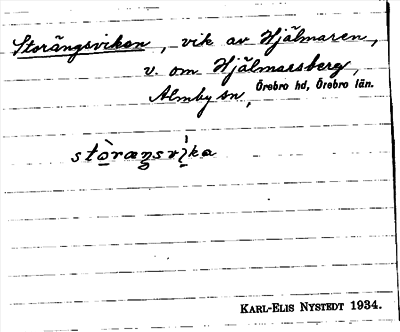 Storängsviken, vik av Hjälmaren,
v. om Hjälmarsberg,
Almby sn, Örebro hd, Örebro län.
stò̱ræŋsvì̱ka
KARL-ELIS NYSTEDT 1934.